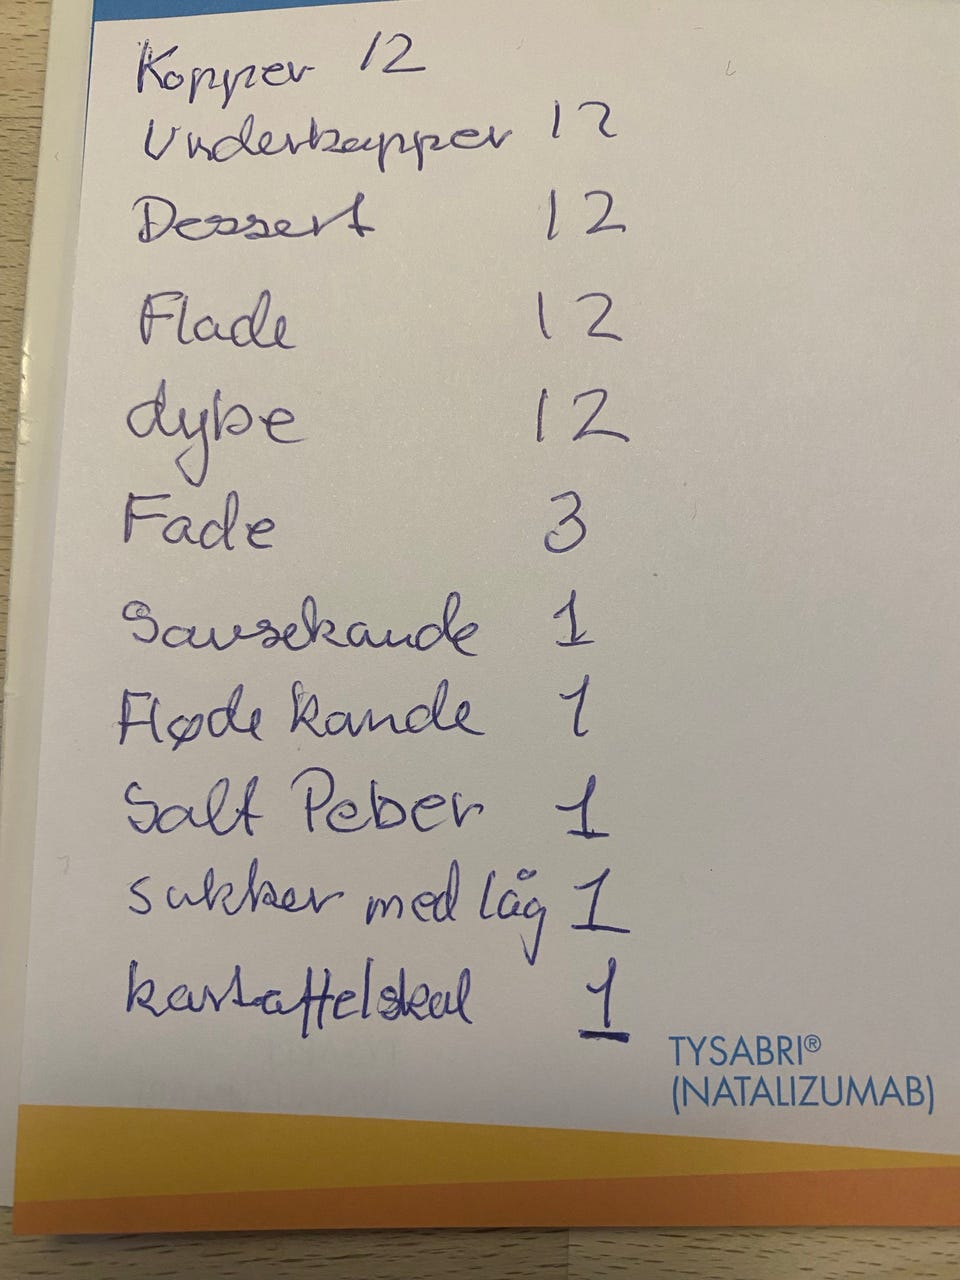 Kopper 12
Underkopper 12
Dessert 12
Flade 12
dybe 12
Fade 3
Sausekande 1
Fløde kande 1
Salt Peber 1
sukker med låg 1
kartoffelskal 1
TYSABRI®
(NATALIZUMAB)